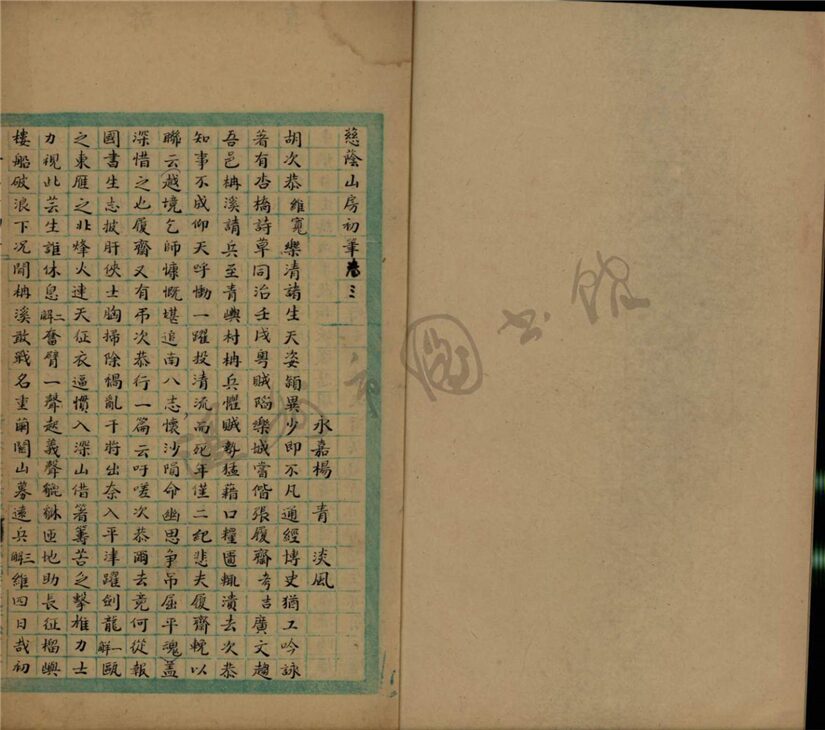 慈蔭山房初筆卷三
永嘉楊青淡風
胡次恭維寬樂清諸生天姿穎異少即不凡通經博史猶工吟詠
著有杏橋詩草同治壬戌粵賊陷樂城嘗偕張履齋考吉廣文趨
吾邑枏溪請兵至青嶼村枏兵懼賊勢猛藉口糧匱輒潰去次恭
知事不成仰天呼慟一躍投清流而死年僅二紀悲夫履齋輓以
聯云越境乞師慷慨堪追南八志懷沙隕命幽思爭吊屈平魂蓋
深惜之也履齋又有弔次恭行一篇云吁嗟次恭爾去竟何從報
國書生志披肝俠士胸掃除禍亂干將出奈入平津躍劍龍一解甌
之東雁之北烽火連天征衣逼慣入深山借箸籌苦乏擊椎力士
力視此芸生誰休息二解奮臂一聲起義聲貔貅匝地助長征榴嶼
樓船破浪下況聞枏溪敢戰名重繭關山募遠兵三解維四日哉初